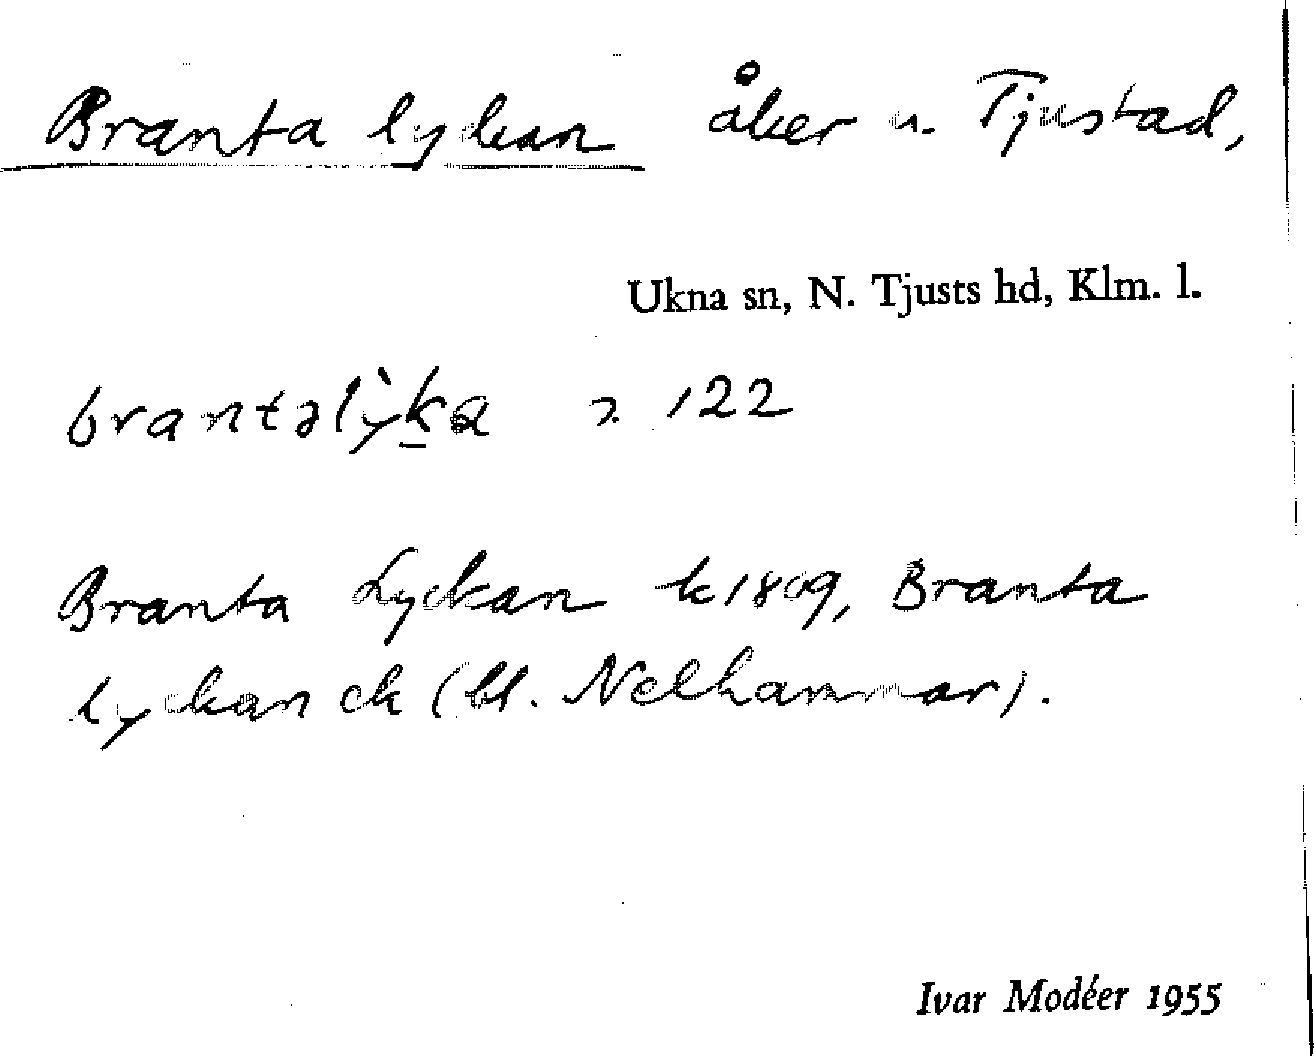 Branta lyckan åker u. Tjustad,
Ukna sn, N. Tjusts hd, Klm. l.
brantəlỳk̲a 2. 122
Branta Lyckan k 1809, Branta
lyckan ck (bl. Nelhammar).
Ivar Modéer 1955